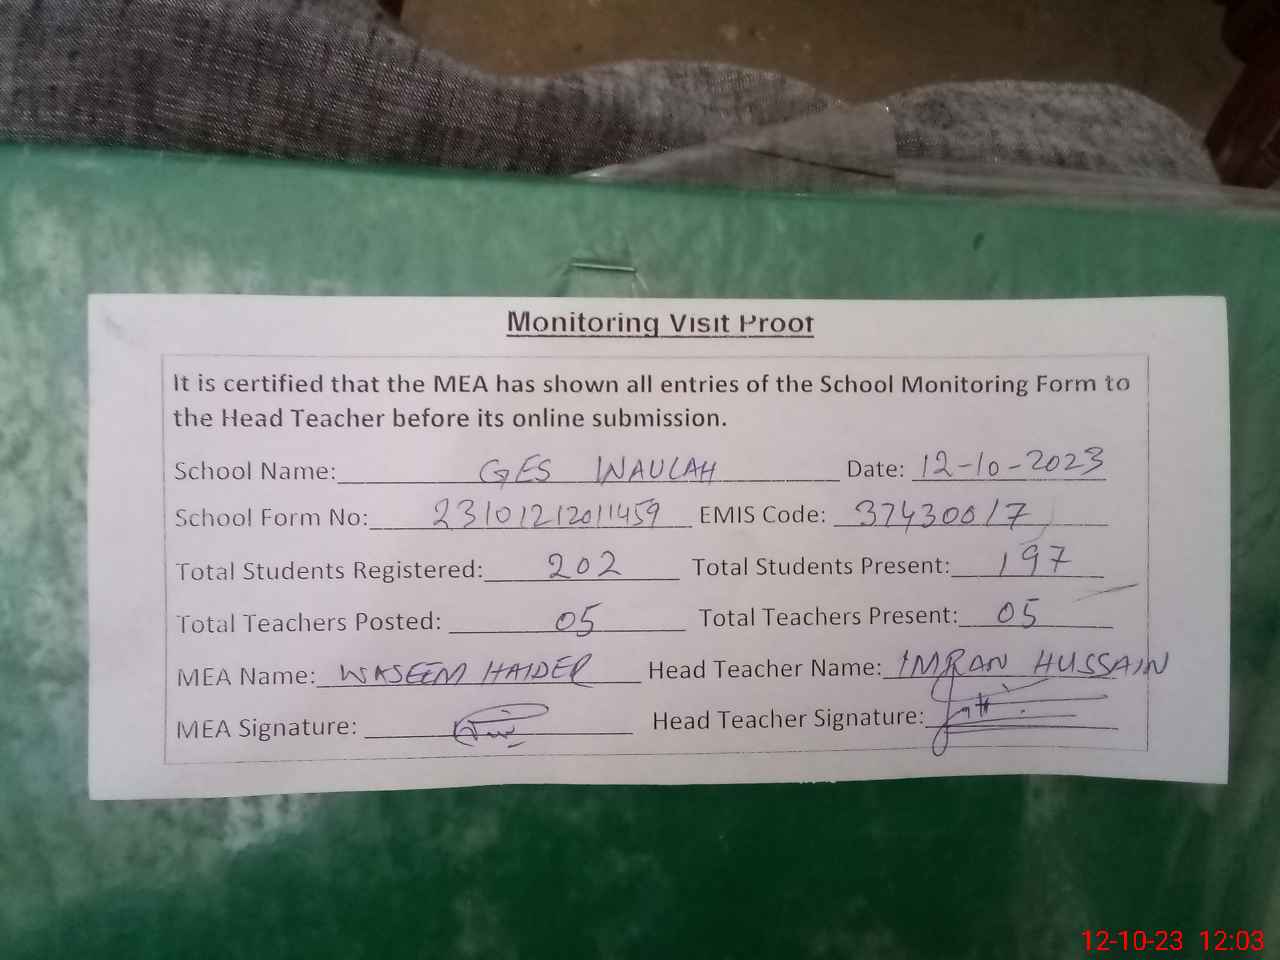 Monitoring Visit Proof
It is certified that the MEA has shown all entries of the School Monitoring Form to
the Head Teacher before its online submission.
School Name: GES WAULAH Date: 12-10-2023
School Form No: 23101212011459 EMIS Code: 37430017
Total Students Registered: 202 Total Students Present: 197
Total Teachers Posted: 05 Total Teachers Present: 05
MEA Name: WASEEM HAIDER Head Teacher Name: IMRAN HUSSAIN
MEA Signature: Head Teacher Signature:
12-10-23 12:03